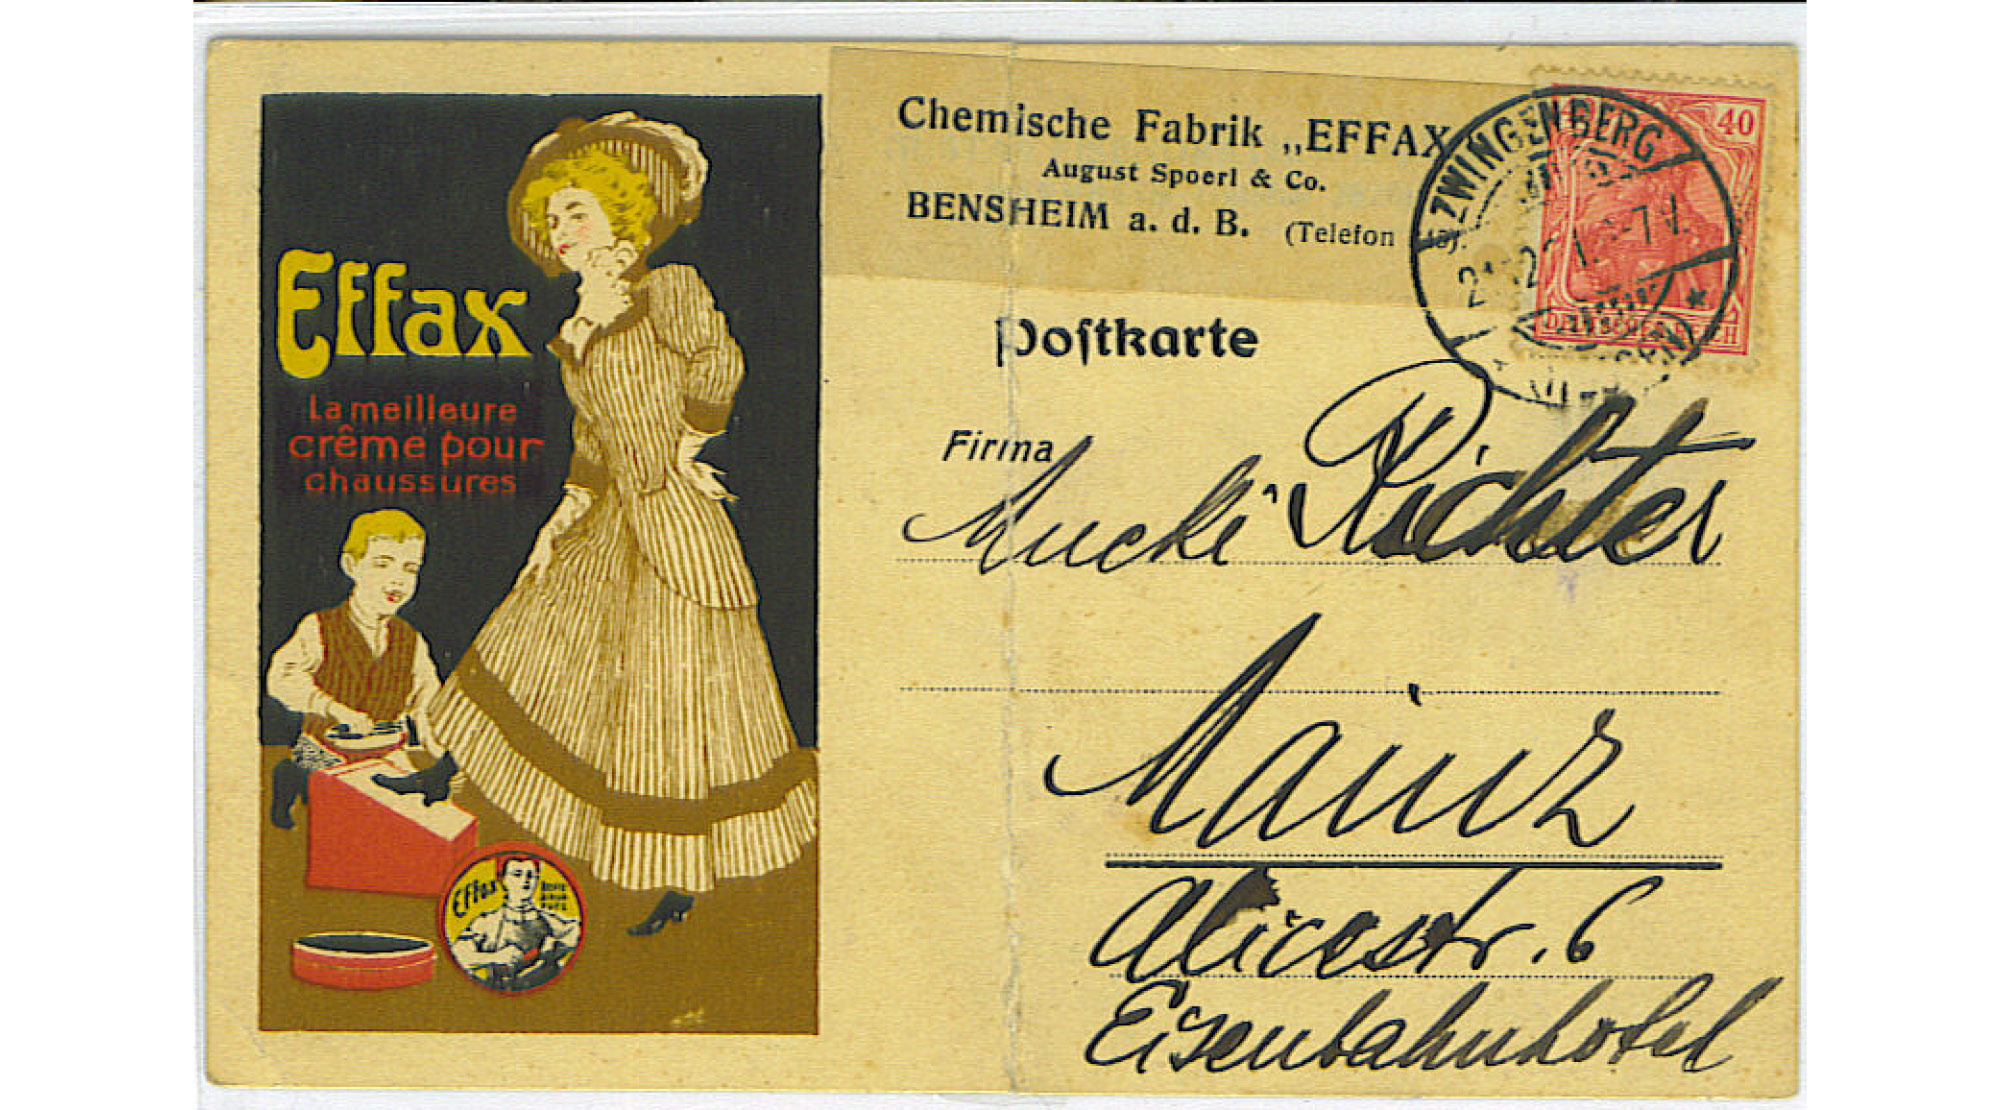 Effax
La meilleure
crême pour
chaussures
Effax
Chemische Fabrik „EFFAX
August Spoerl & Co.
BENSHEIM a. d. B. (Telefon
ZWINGENBERG
40
DEUTSCHES REICH
Postkarte
Firma
Mucki Richter
Mainz
Alicestr. 6
Eisenbahnhotel